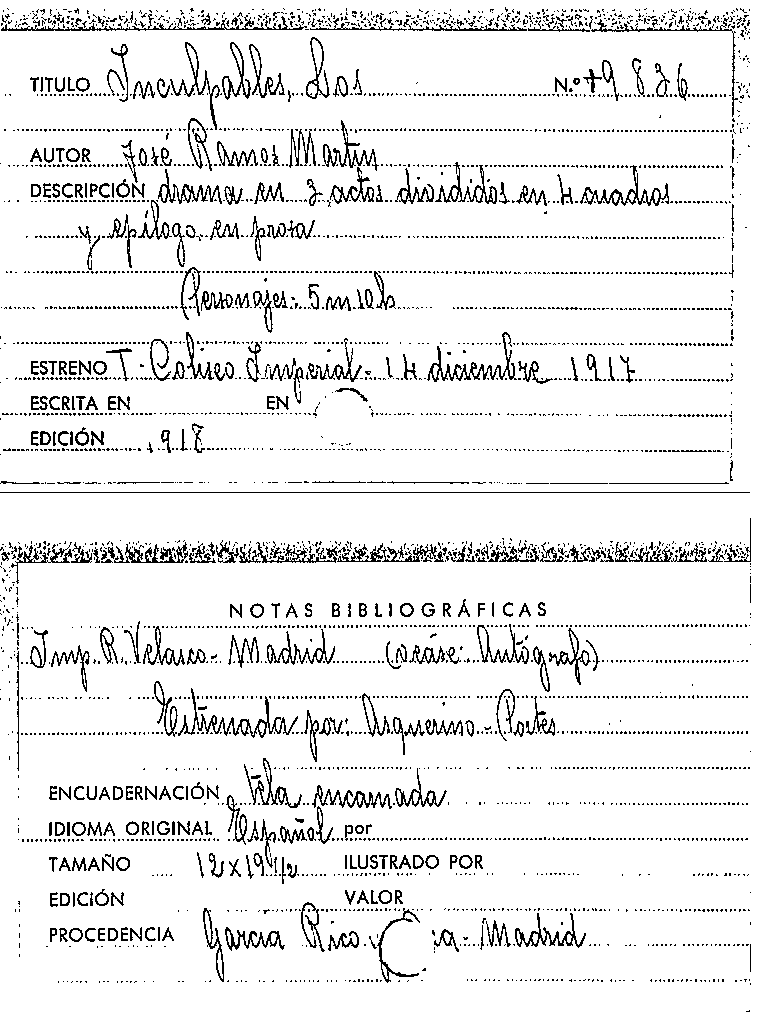 TITULO Inculpables, Los N.º 49 836
AUTOR José Ramos Martín
DESCRIPCIÓN drama en 3 actos divididos en 4 cuadros
y epílogo, en prosa
Personajes: 5 m 10 h
ESTRENO T. Coliseo Imperial - 14 diciembre 1917
ESCRITA EN EN
EDICIÓN 1918
NOTAS BIBLIOGRÁFICAS
Imp. R. Velasco - Madrid (véase: Autógrafo)
Estrenada por: Asquerino - Portes
ENCUADERNACIÓN tela encarnada
IDIOMA ORIGINAL Español por
TAMAÑO 12 x 19 1/2 ILUSTRADO POR
EDICIÓN VALOR
PROCEDENCIA García Rico y - Madrid